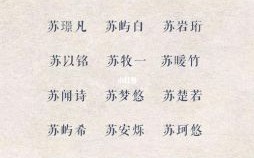 苏璟凡 苏屿白 苏岩珩
苏以铭 苏牧一 苏暖竹
苏闻诗 苏梦悠 苏楚若
苏屿希 苏安烁 苏珂悠